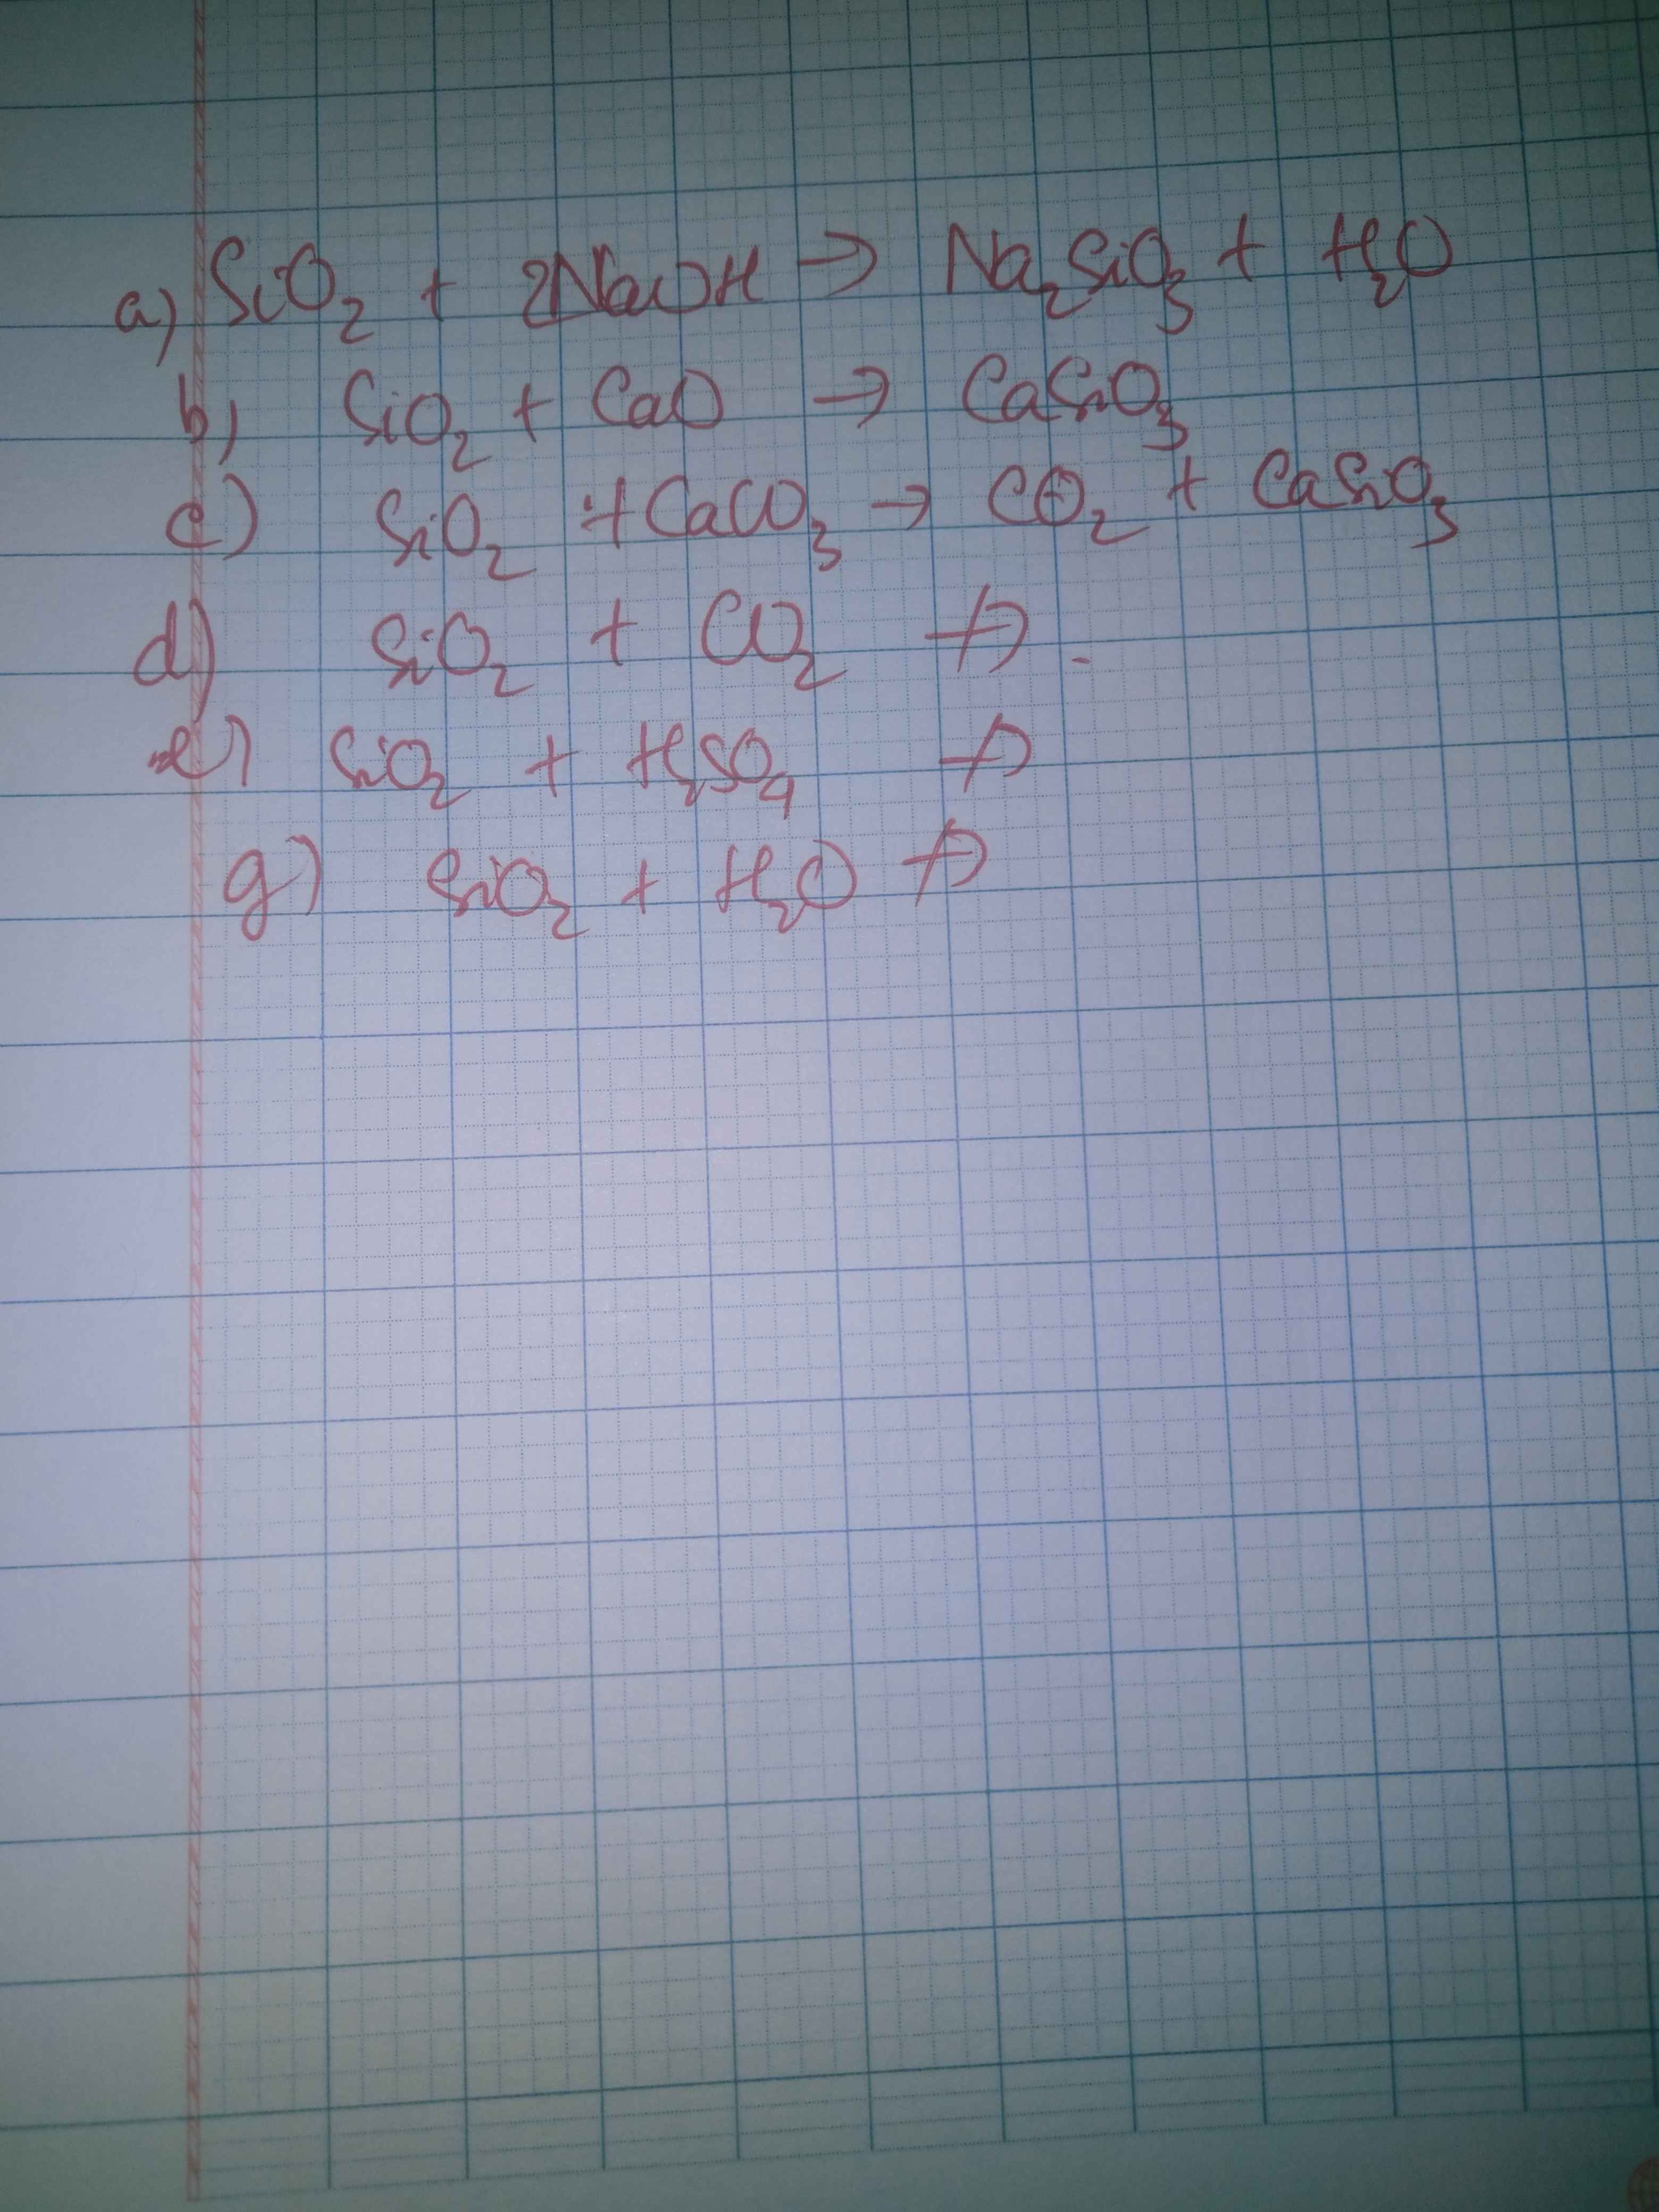 a) SiO₂ + 2NaOH → Na₂SiO₃ + H₂O
b) SiO₂ + CaO → CaSiO₃
c) SiO₂ + CaCO₃ → CO₂ + CaSiO₃
d) SiO₂ + CO₂ ↛ .
e) SiO₂ + H₂SO₄ ↛
g) SiO₂ + H₂O ↛